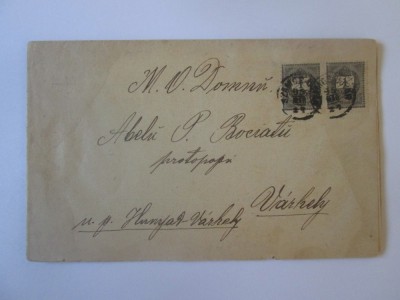 M. O. Domnŭ
Abelŭ P. Bociatŭ
protopopŭ
Várhely
u. p. Hunyad-Várhely